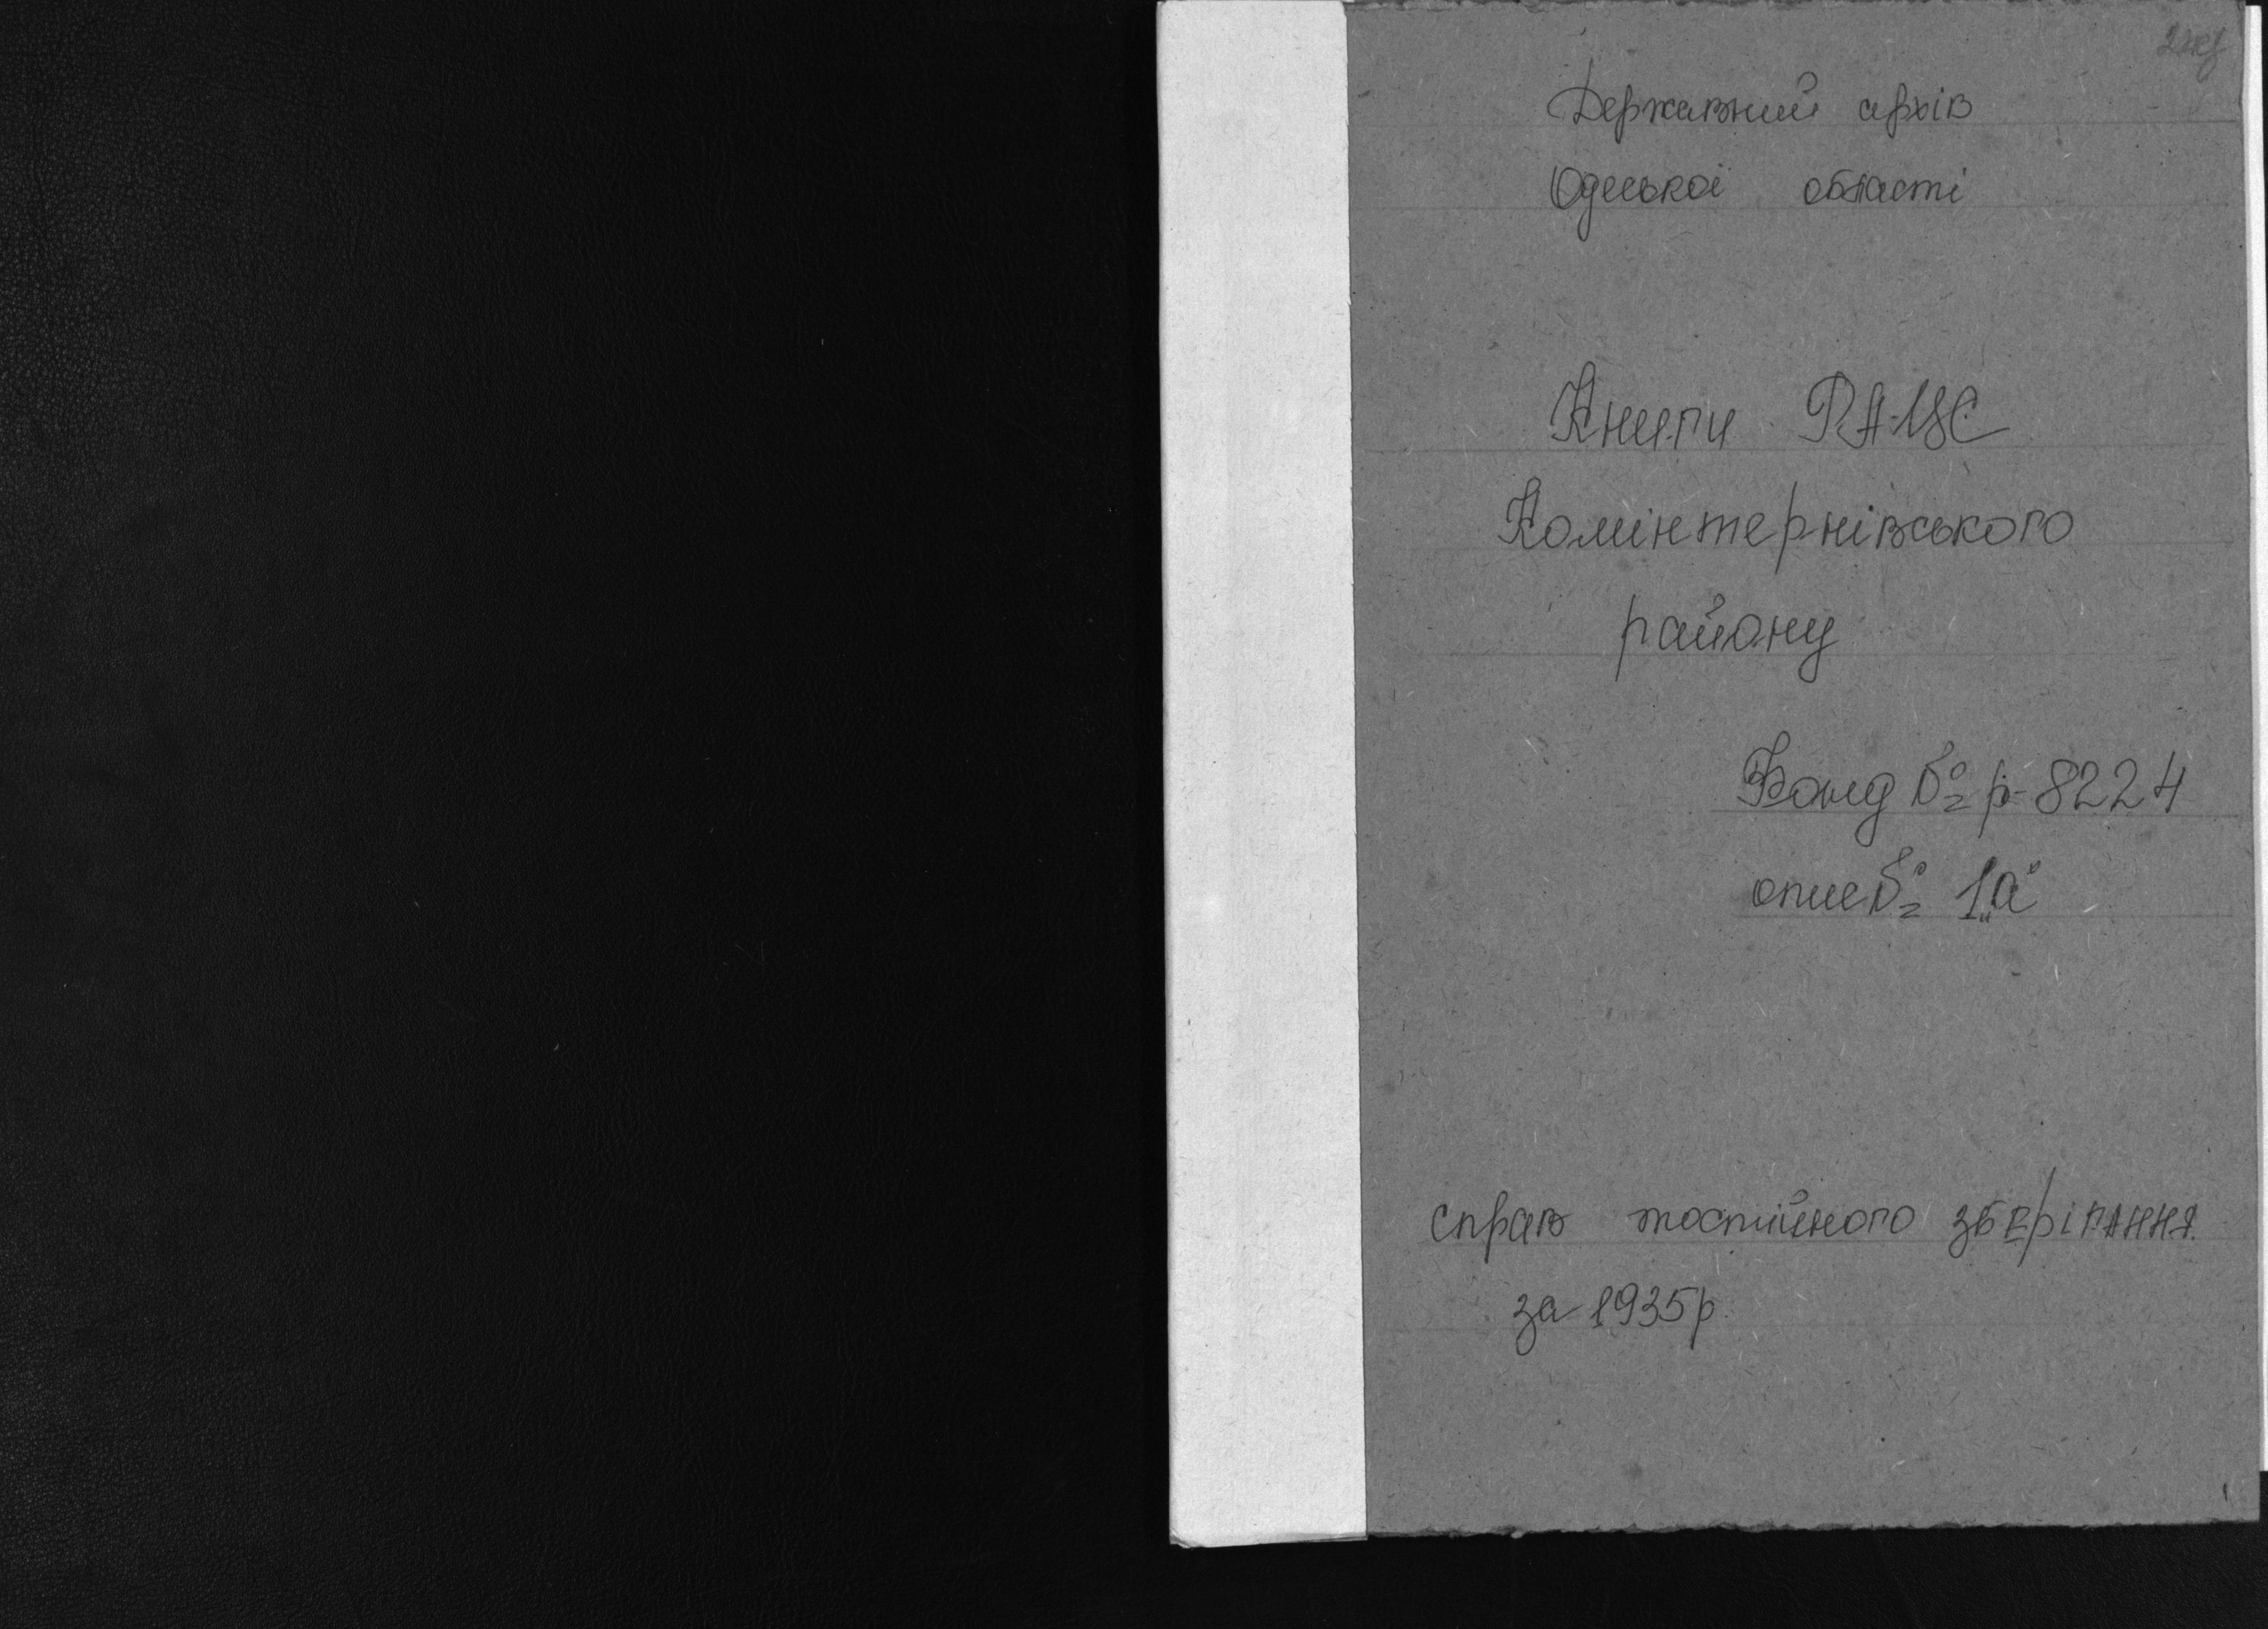 Державний архів
Одеської області
Книги РАЦС
Комінтернівського
району
Фонд № р-8224
опис № 1„а"
справ постійного зберігання
за 1935р.